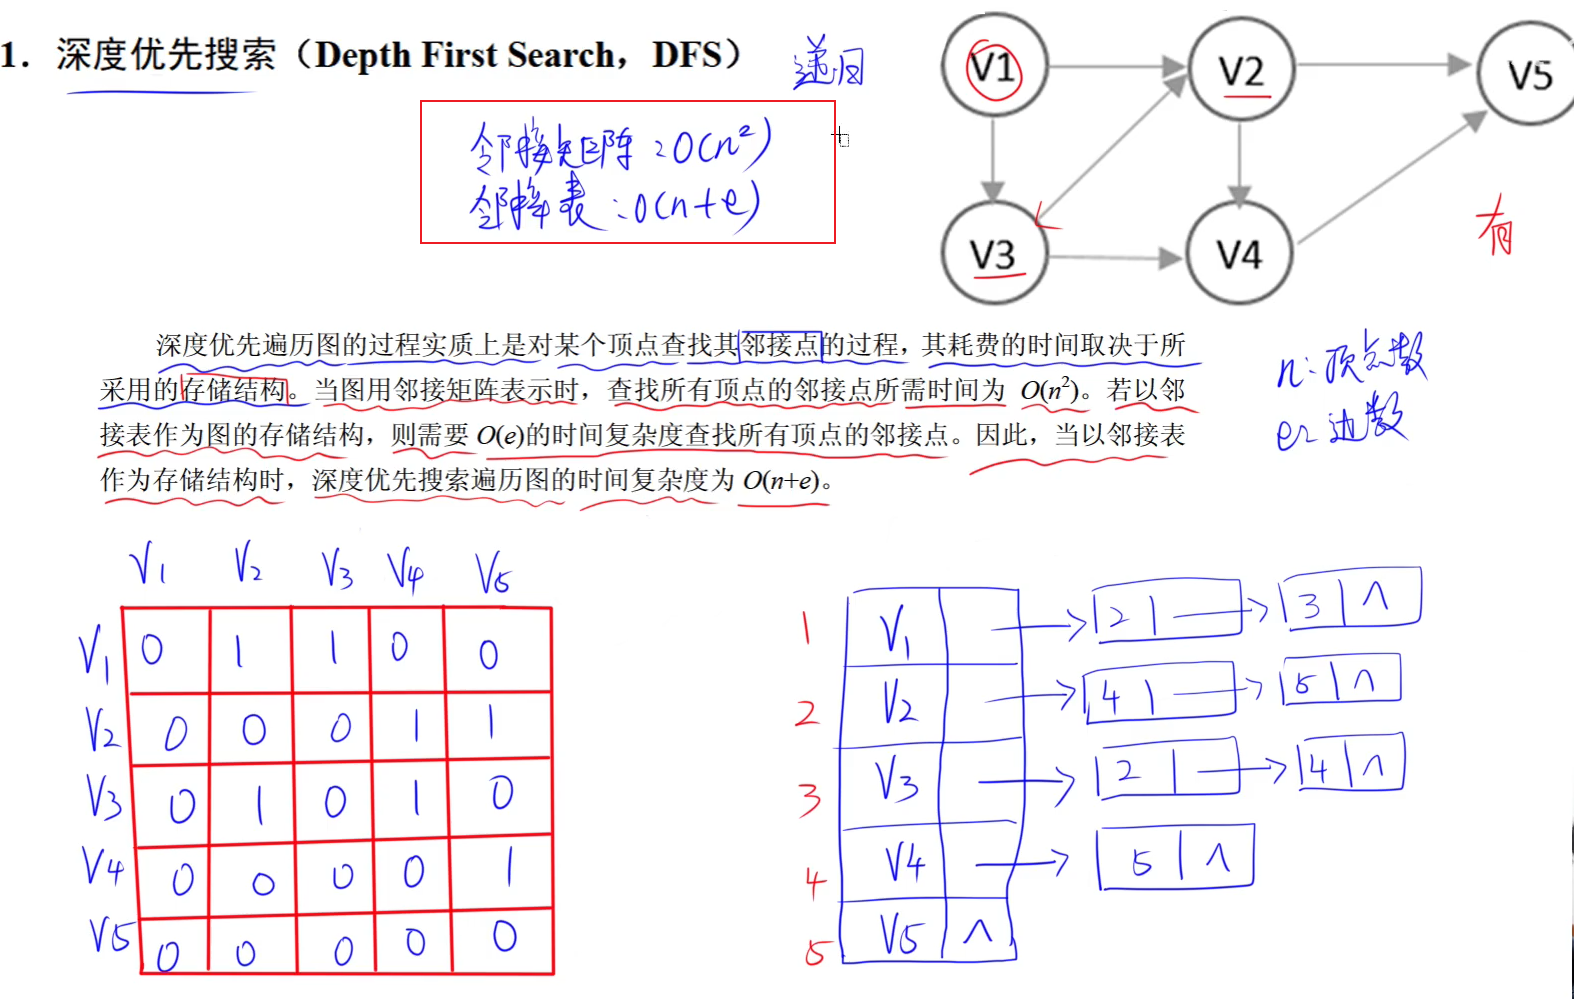 1. 深度优先搜索（Depth First Search，DFS）
递归
邻接矩阵：O(n²)
邻接表：O(n+e)
V1
V2
V5
V3
V4
有
深度优先遍历图的过程实质上是对某个顶点查找其邻接点的过程，其耗费的时间取决于所
采用的存储结构。当图用邻接矩阵表示时，查找所有顶点的邻接点所需时间为 O(n²)。若以邻
接表作为图的存储结构，则需要 O(e)的时间复杂度查找所有顶点的邻接点。因此，当以邻接表
作为存储结构时，深度优先搜索遍历图的时间复杂度为 O(n+e)。
n：顶点数
e：边数
V1 V2 V3 V4 V5
V1 0 1 1 0 0
V2 0 0 0 1 1
V3 0 1 0 1 0
V4 0 0 0 0 1
V5 0 0 0 0 0
1 V1 2 3 ∧
2 V2 4 5 ∧
3 V3 2 4 ∧
4 V4 5 ∧
5 V5 ∧